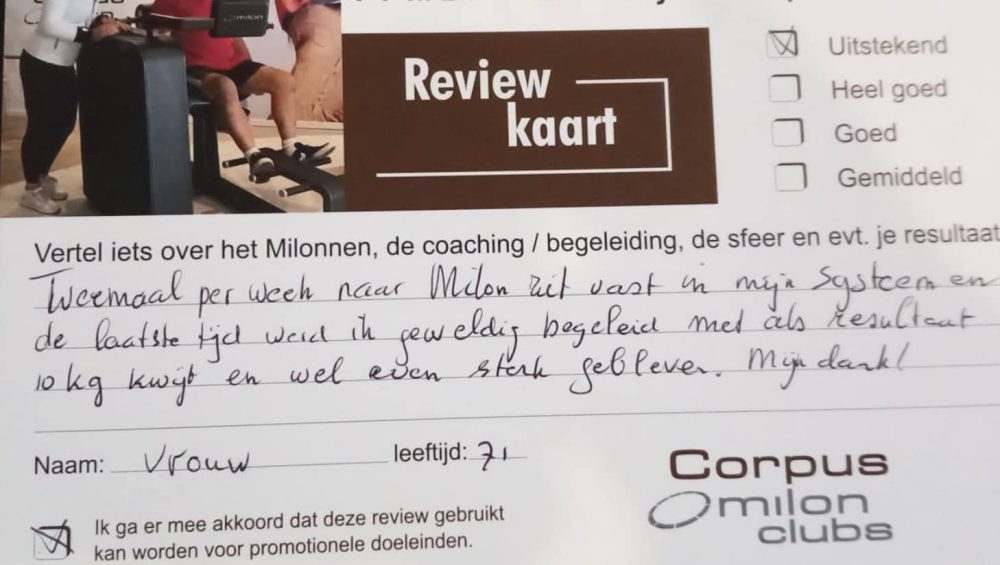 milon
Review
kaart
Uitstekend
Heel goed
Goed
Gemiddeld
Vertel iets over het Milonnen, de coaching / begeleiding, de sfeer en evt. je resultaat
Tweemaal per week naar Milon zit vast in mijn systeem en
de laatste tijd werd ik geweldig begeleid met als resultaat
10 kg kwijt en wel even sterk gebleven. Mijn dank!
Naam: Vrouw leeftijd: 71
Ik ga er mee akkoord dat deze review gebruikt
kan worden voor promotionele doeleinden.
Corpus
milon
clubs